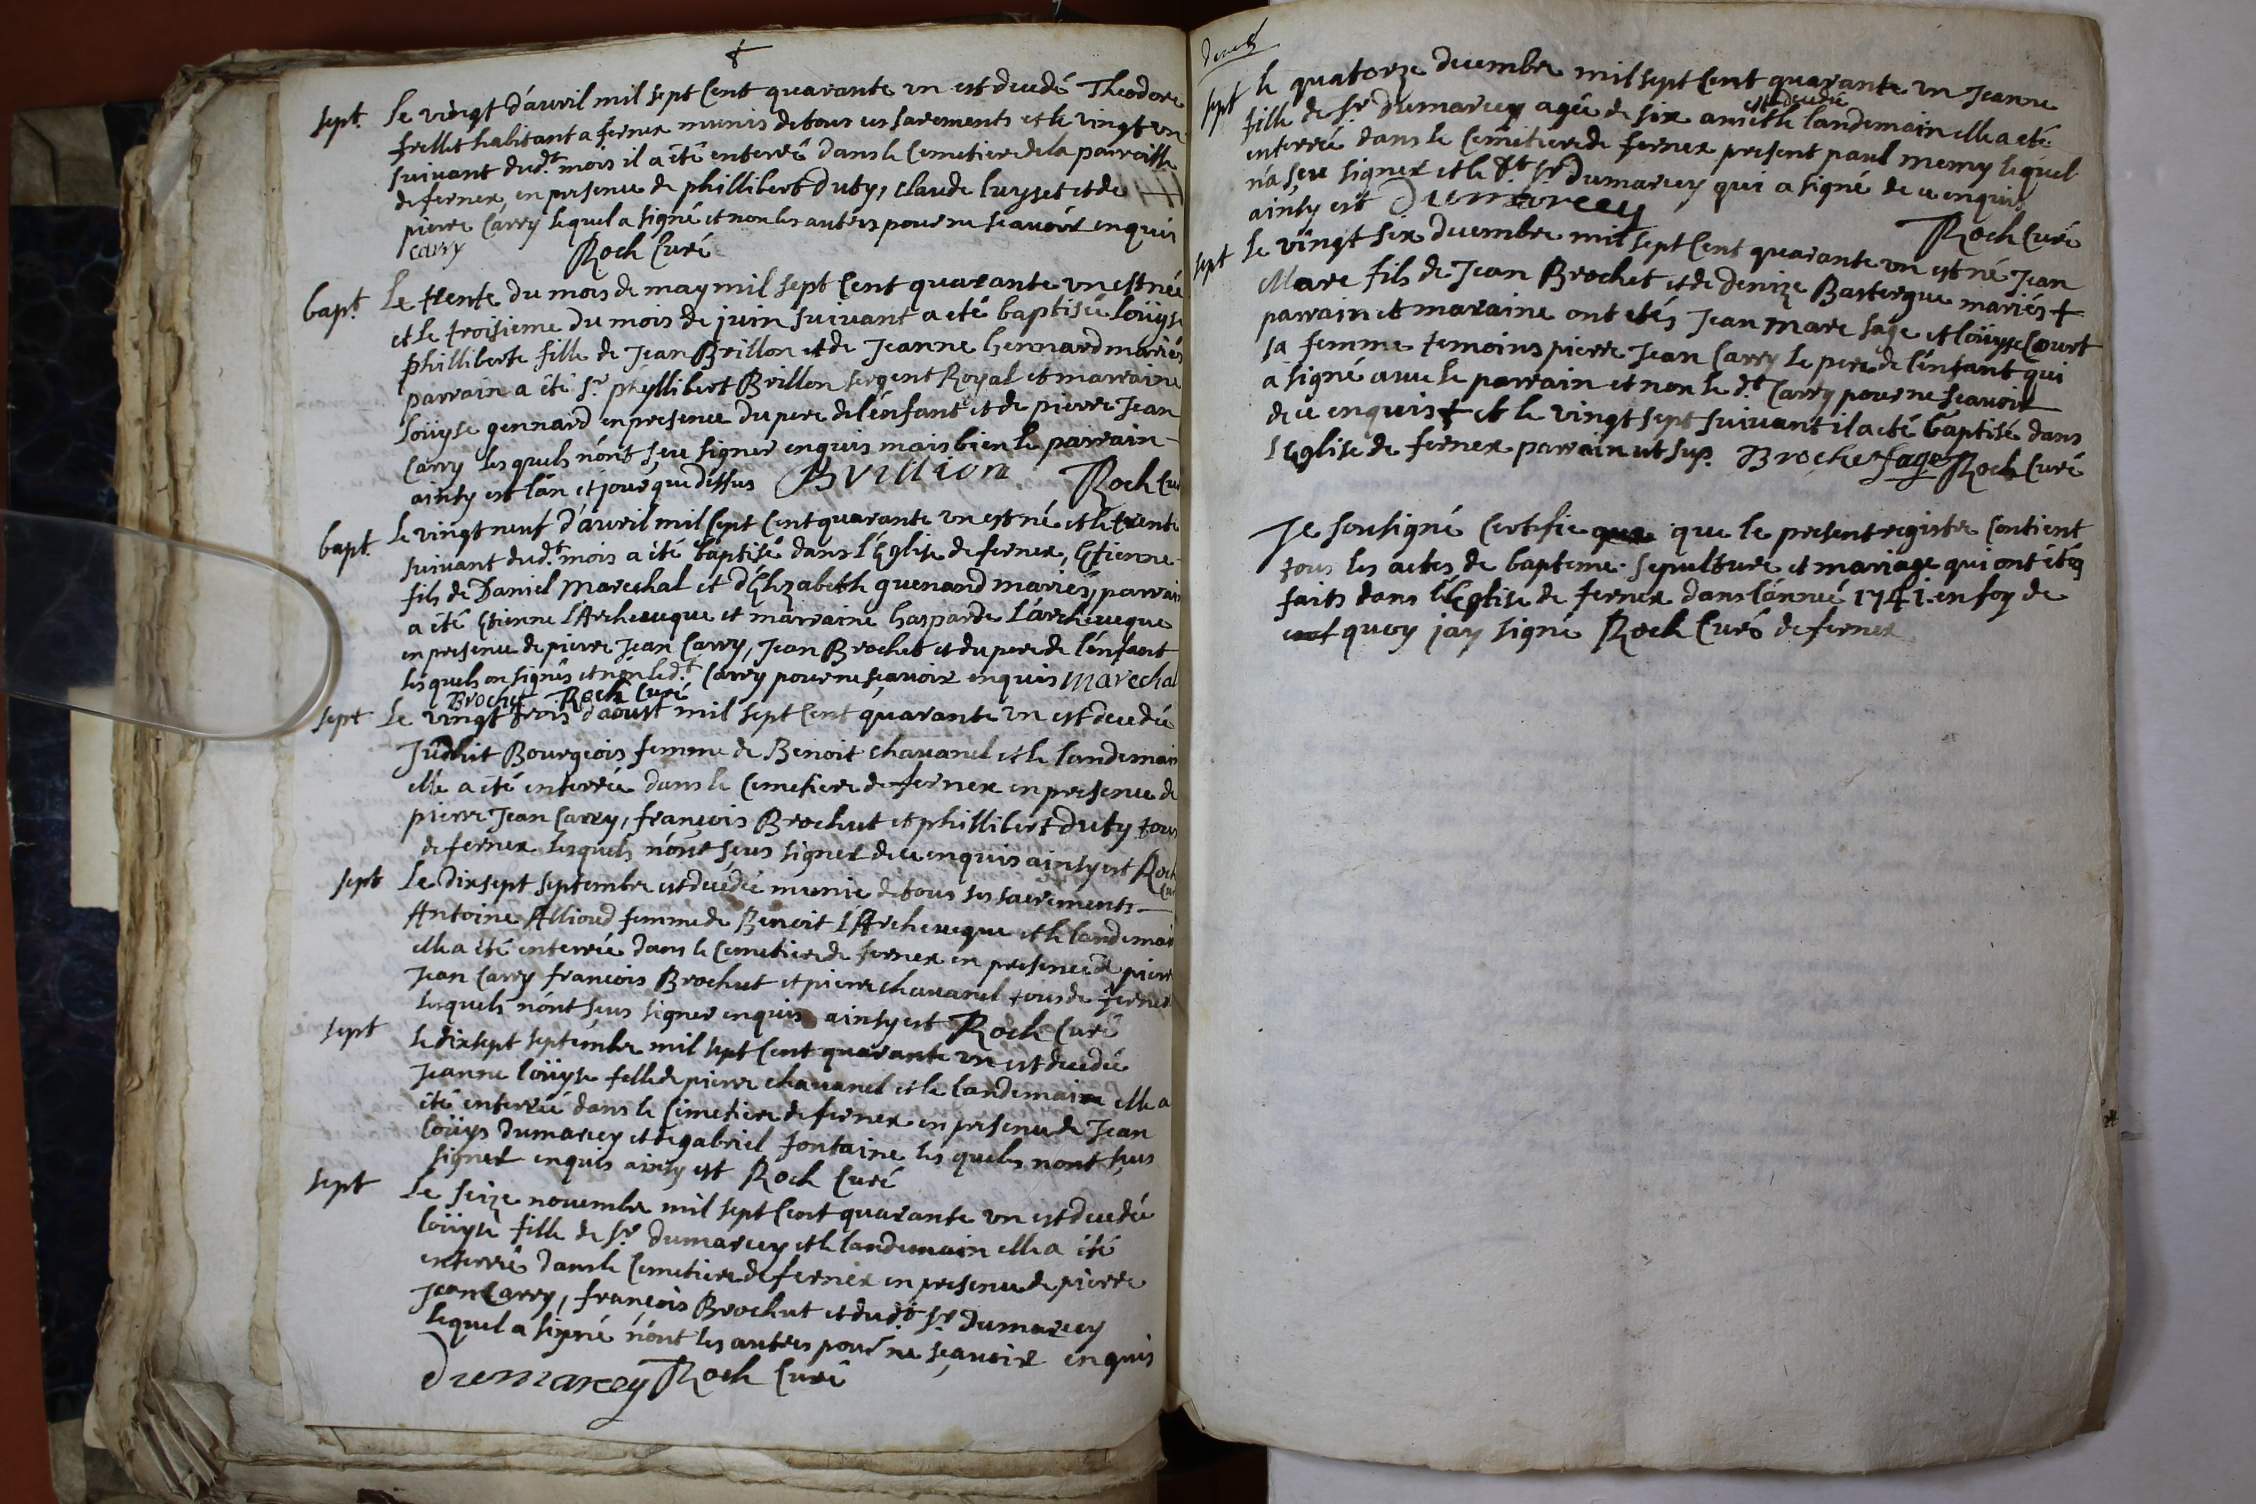 sept. Le vingt d'avril mil sept Cent quarante un est decedé Theodore
frellet habitant a fernex munis de tous ses sacrements et le vingt un
suivant dud.t mois il a été enterré dans le Cemetiere de la parroisse
de fernex, en presence de phillibert duty, claude luysset et de
pierre Carry lequel a signé et non les autres pour ne scauoir enquis
carry Roch Curé
bapt. Le trente du mois de may mil sept Cent quarante un est née
et le troisieme du mois de juin suivant a eté baptisée Loüyse
phillibert fille de Jean Brillon et de Jeanne Gennard mariés
parrain a été Sr. phyllibert Brillon sergent Royal et marraine
Loüyse gennard en presence du pere de l'enfant et de pierre Jean
Carry les quels n'ont sçeu signer enquis mais bien le parrain
ainsy est l'an et jour que dessus Brillion Roch Cu
bapt. Le vingt neuf d'avril mil sept Cent quarante un est né et le trente
suivant dud.t mois a été baptisé dans l'Eglise de fernex, Etienne
fils de Daniel Marechal et d'Elizabeth guenand mariés, parrain
a été Etienne l'Archeueque et marraine Gasparde L'archeueque
en presence de pierre Jean Carry, Jean Brochet et du pere de l'enfant
lesquels on signés et non led.t Carry pour ne sçauoir enquis Marechal
Brochet Roch Curé
sept Le vingt trois d'aoust mil sept Cent quarante un est decedée
Judhit Bourgeois femme de Benoit chauanel et le landemain
elle a été enterrée dans le Cemetiere de fernex en presence de
pierre Jean Carry, françois Brochut et phillibert duty tous
de fernex lesquels n'ont sçeus signer de ce enquis ainsy est Roch
Cu
sept Le dixsept septembre est decedée munie de tous ses sacrements
Antoine Alliod femme de Benoit l'Archeueque et le landemain
elle a été enterrée dans le Cemetiere de fernex en presence de pierre
Jean Carry françois Brochut et pierre chauanel tous de fernex
lesquels n'ont sçeus signer enquis ainsy est Roch Curé
sept Le dixsept septembre mil sept Cent quarante un est decedée
Jeanne loüyse fille de pierre chauanel et le landemain elle a
été enterrée dans le Cimetiere de fernex en presence de Jean
Loüys dumarcey et de gabriel fontaine les quels nont sçeus
signer enquis ainsy est Roch Curé
sept Le seize nouembre mil sept Cent quarante un est decedée
loüyse fille de Sr. dumarcey et le landemain elle a été
enterrée dans le Cemetiere de fernex en presence de pierre
Jean Carry, françois Brochut et dud.t Sr. dumarcey
lequel a signé n'ont les autres pour ne sçauoir enquis
Dumarcey Roch Curé
sept Le quatorze decembre mil sept Cent quarante un Jeanne
fille de Sr. dumarcey agée de six ans est decedée et le landemain elle a eté
enterrée dans le Cemetiere de fernex present paul memy lequel
n'a sceu signer et le d.t Sr. dumarcey qui a signé de ce enquis
ainsy est Dumarcey Roch Curé
sept Le vingt six decembre mil sept Cent quarante un est né Jean
Marc fils de Jean Brochet et de denize Basterque mariés +
parrain et maraine ont etés Jean marc sage et loüyse Court
sa femme temoins pierre Jean Carry Le pere de l'enfant qui
a signé avec le parrain et non le d.t Carry pour ne sçauoir
de ce enquis + et le vingt sept suivant il a été baptisé dans
l'Eglise de fernex parrain ut sup. Brochet sage Roch Curé
Je sousigné Certifie que que le present registre Contient
tous les actes de bapteme. sepulture et mariage qui ont étés
faits dans l'Eglise de fernex dans l'année 1741. en foy de
quoy jay signé Roch Curé de fernex